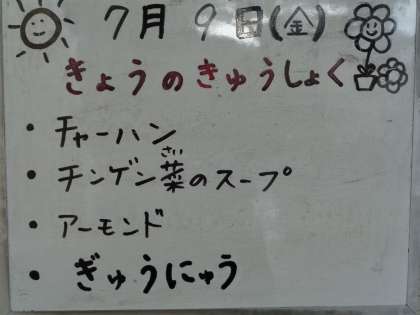 7月9日(金)
きょうのきゅうしょく
・チャーハン
さい
・チンゲン菜のスープ
・アーモンド
・ぎゅうにゅう